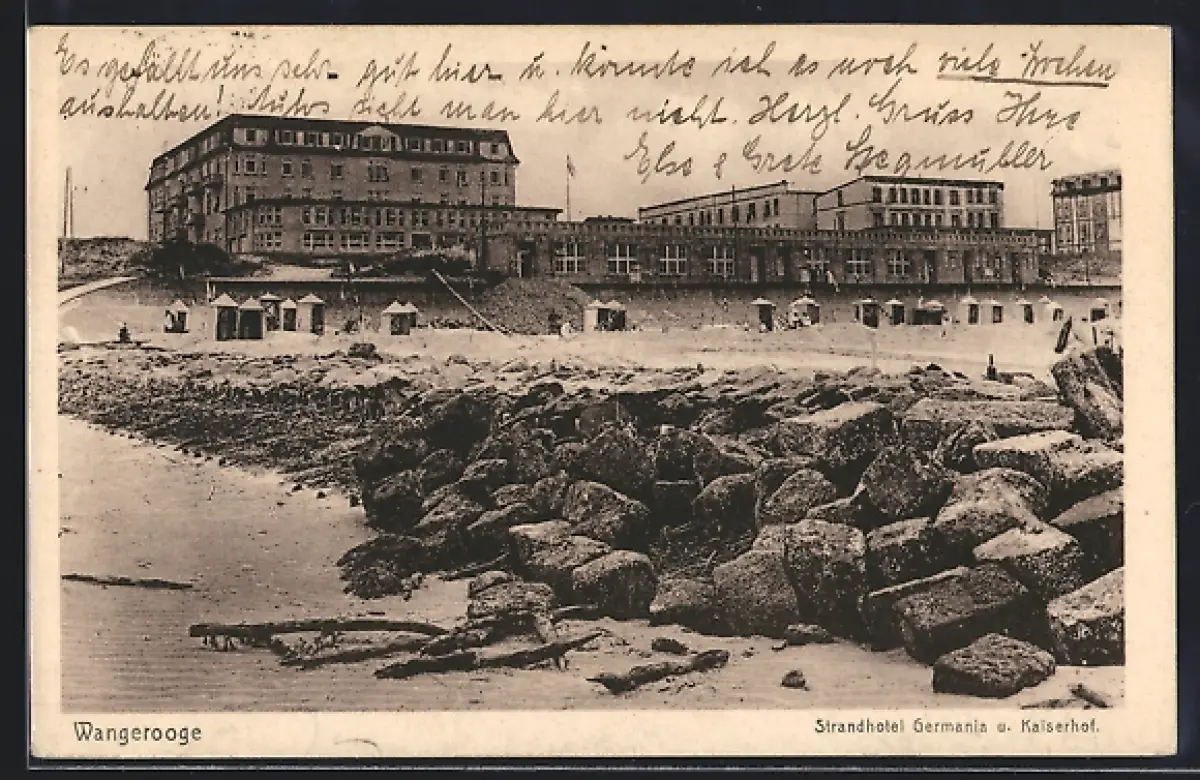 Es gefällt uns sehr gut hier u. könnte ich es noch viele Wochen
aushalten! Autos sieht man hier nicht. Herzl. Gruss
Else & Grete
Wangerooge
Strandhotel Germania u. Kaiserhof.